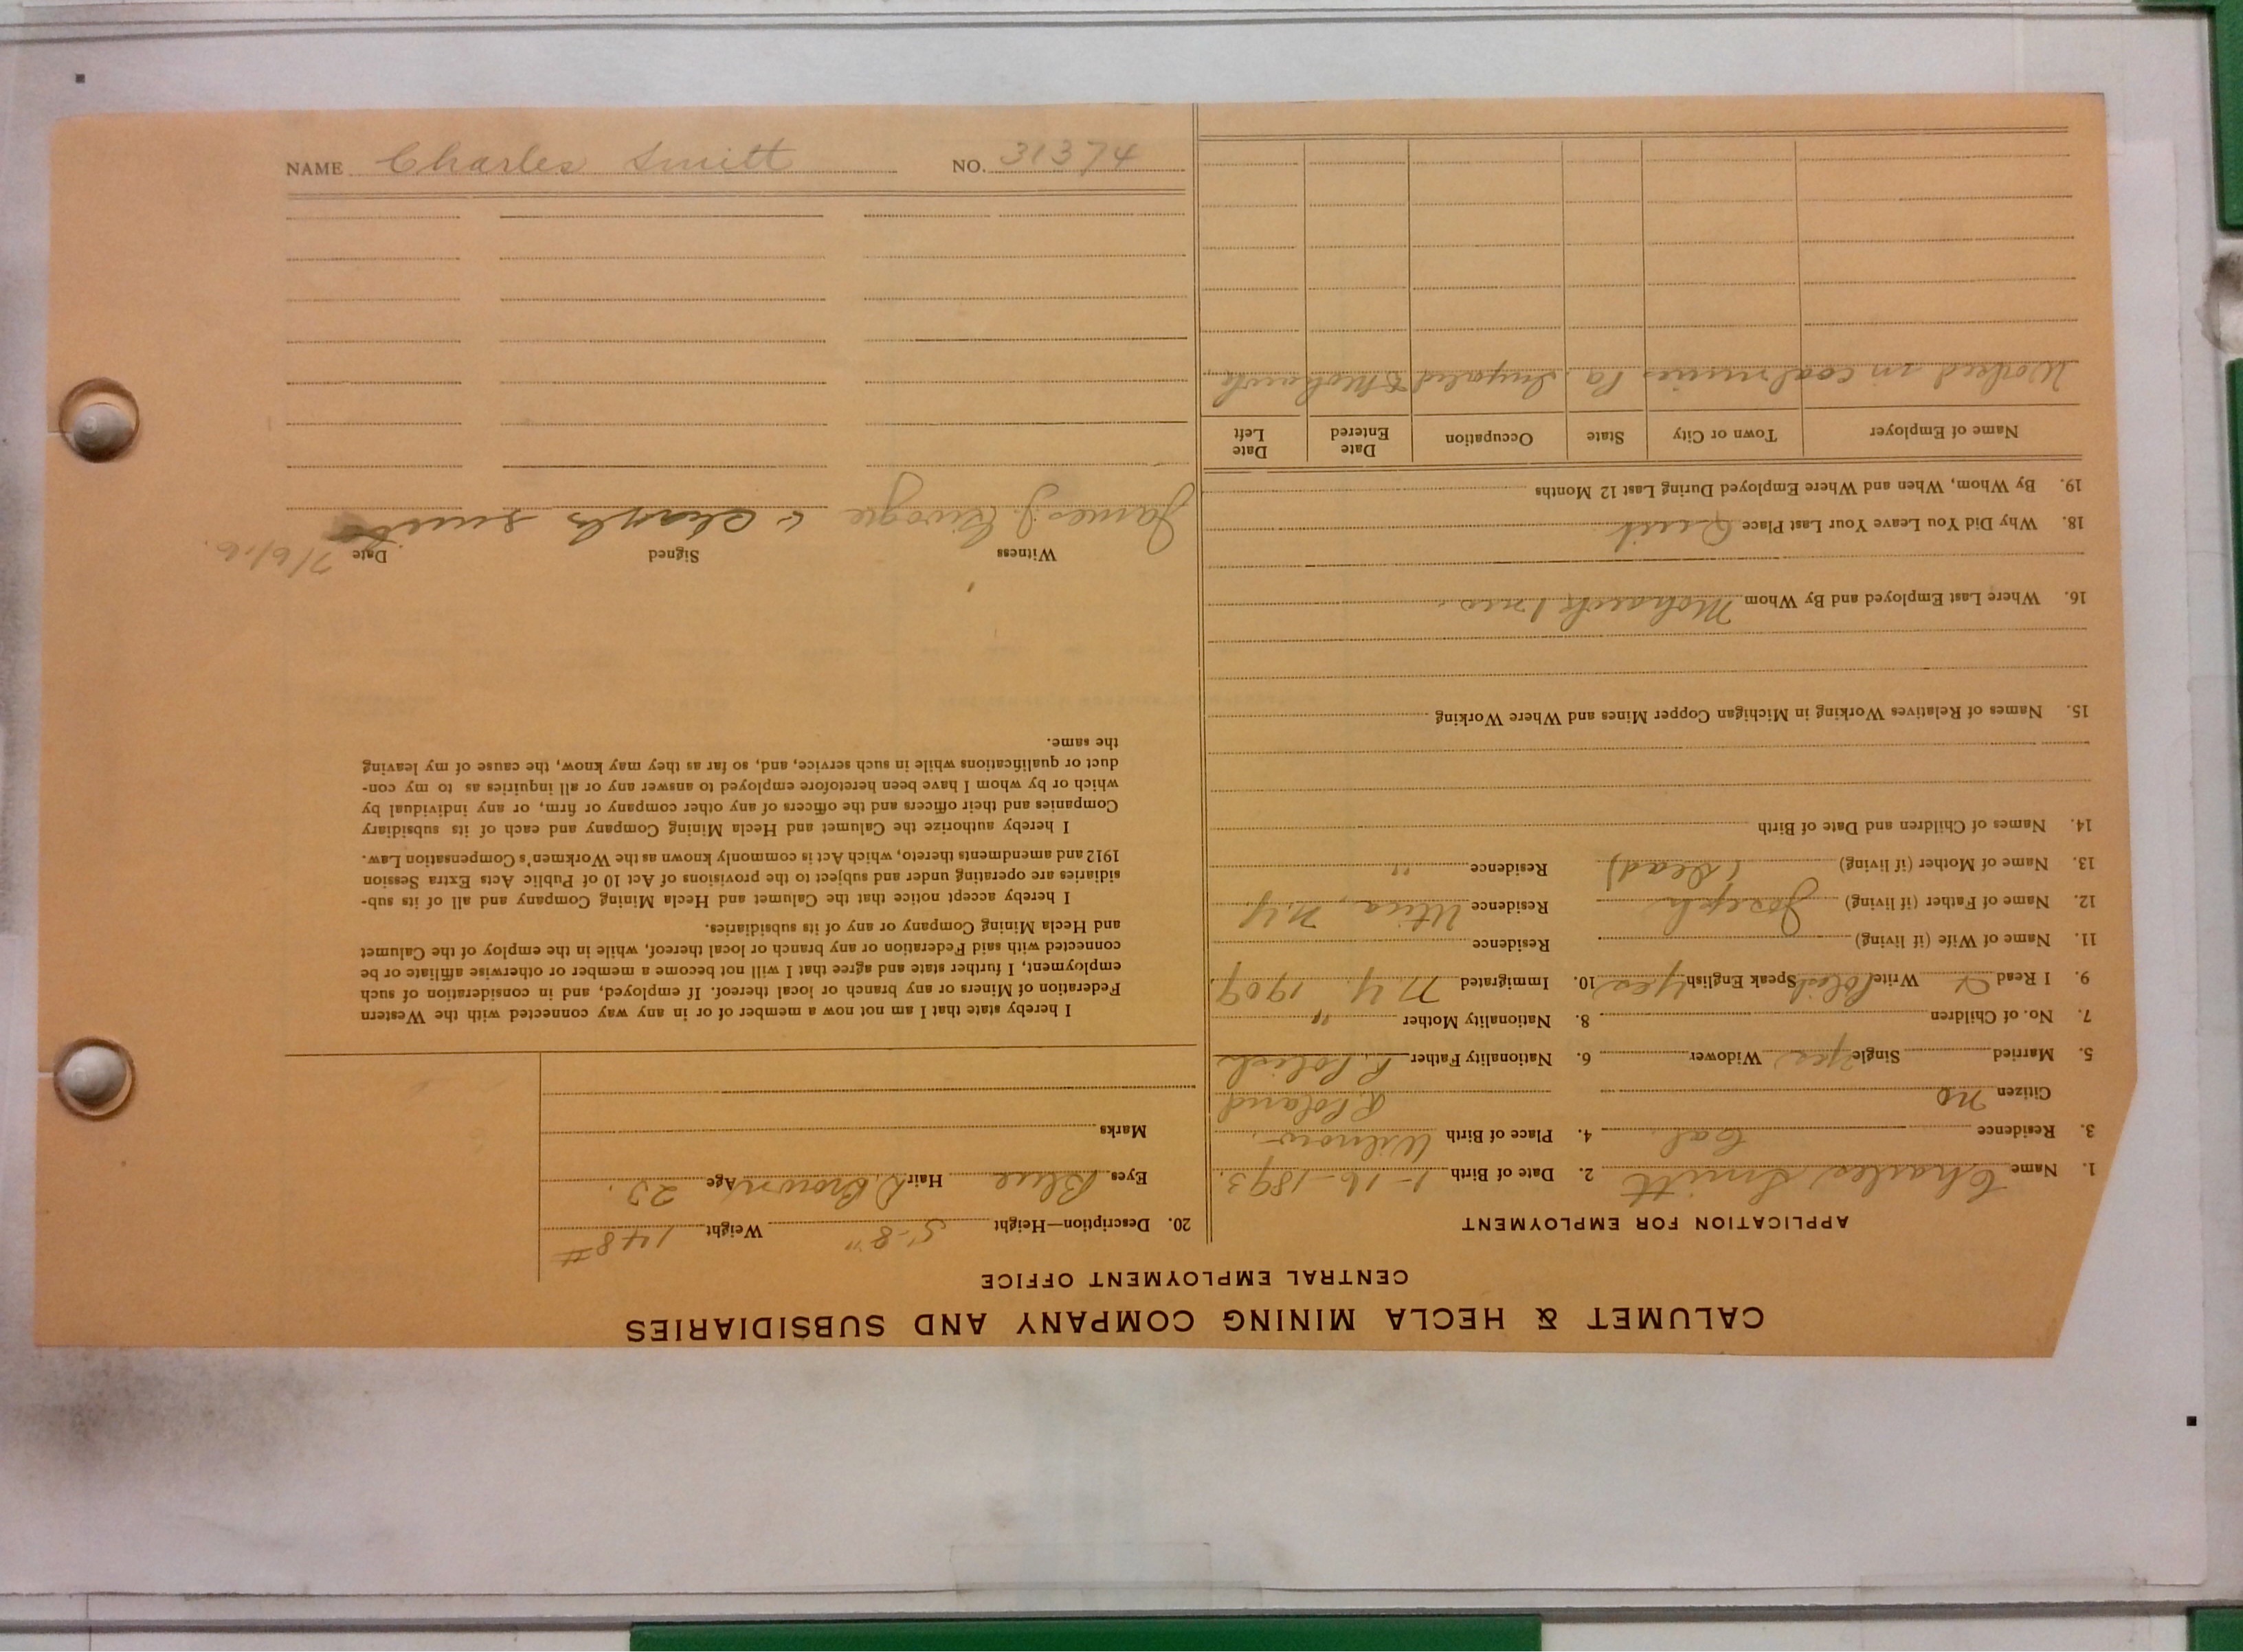 CALUMET & HECLA MINING COMPANY AND SUBSIDIARIES
CENTRAL EMPLOYMENT OFFICE
APPLICATION FOR EMPLOYMENT
1. Name Charles Smitt 2. Date of Birth 1-16-1893.
3. Residence Cal. 4. Place of Birth
Citizen no R. Poland
5. Married Single yes Widower 6. Nationality Father R. Polish
7. No. of Children 8. Nationality Mother "
9. I Read & Write Polish Speak English yes 10. Immigrated N.Y. 1909
11. Name of Wife (if living) Residence
12. Name of Father (if living) Joseph Residence Utica, N.Y.
13. Name of Mother (if living) (Dead) Residence "
14. Names of Children and Date of Birth
15. Names of Relatives Working in Michigan Copper Mines and Where Working
16. Where Last Employed and By Whom Mohawk
18. Why Did You Leave Your Last Place Quit
19. By Whom, When and Where Employed During Last 12 Months
Name of Employer Town or City State Occupation Date Entered Date Left
Worked in coal mines Pa. & Mohawk
20. Description—Height 5'-8" Weight 148#
Eyes Blue Hair D. Brown Age 23.
Marks
I hereby state that I am not now a member of or in any way connected with the Western
Federation of Miners or any branch or local thereof. If employed, and in consideration of such
employment, I further state and agree that I will not become a member or otherwise affiliate or be
connected with said Federation or any branch or local thereof, while in the employ of the Calumet
and Hecla Mining Company or any of its subsidiaries.
I hereby accept notice that the Calumet and Hecla Mining Company and all of its sub-
sidiaries are operating under and subject to the provisions of Act 10 of Public Acts Extra Session
1912 and amendments thereto, which Act is commonly known as the Workmen's Compensation Law.
I hereby authorize the Calumet and Hecla Mining Company and each of its subsidiary
Companies and their officers and the officers of any other company or firm, or any individual by
which or by whom I have been heretofore employed to answer any or all inquiries as to my con-
duct or qualifications while in such service, and, so far as they may know, the cause of my leaving
the same.
Witness Signed Date 7/6/16.
James J.
NAME Charles Smitt NO. 31374